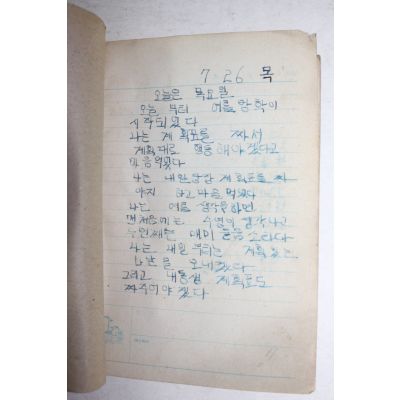 7. 26 목
오늘은 목요일
오늘 부터 여름 방학이
시작되었다
나는 계획표를 짜서
계획대로 행동 해야 겠다고
마음먹었다
나는 내일 당장 계획표를 짜
야지 하고 마음 먹었다
나는 여름 생각을하면
맨처음에는 수영이 생각나고
두번째는 매미 울음 소리다
나는 내일 부터는 계획있는
나날을 보내겠다
그리고 내동생 계획표도
짜주어야 겠다